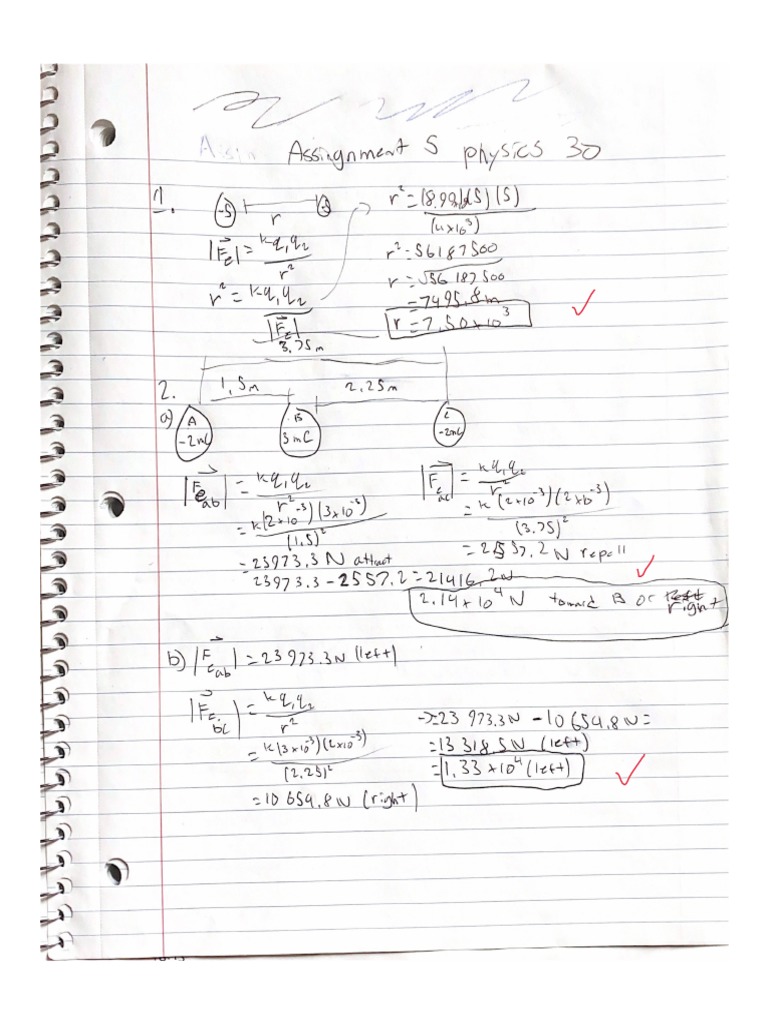 Assignment 5 physics 30
1.
-5 r -5
|F⃗e| = kq₁q₂ / r²
r² = kq₁q₂ / |F⃗e|
r² = (8.99)(5)(5) / (4x10³)
r² = 56187500
r = √56 187500
= 7495.8m
r = 7.50x10³
3.75m
2.
1.5m 2.25m
a)
A -2mC B 3mC C -2mC
|F⃗e ab| = kq₁q₂ / r²
= k(2x10⁻³)(3x10⁻³) / (1.5)²
= 23973.3N attract
|F⃗e ac| = kq₁q₂ / r²
= k(2x10⁻³)(2x10⁻³) / (3.75)²
= 2557.2N repell
23973.3 - 2557.2 = 21416.2N
2.14x10⁴ N toward B or right
b) |F⃗e ab| = 23 973.3N (left)
|F⃗e bc| = kq₁q₂ / r²
= k(3x10⁻³)(2x10⁻³) / (2.25)²
= 10 654.8N (right)
→ 23 973.3N - 10 654.8N =
= 13 318.5N (left)
= 1.33 x10⁴ (left)